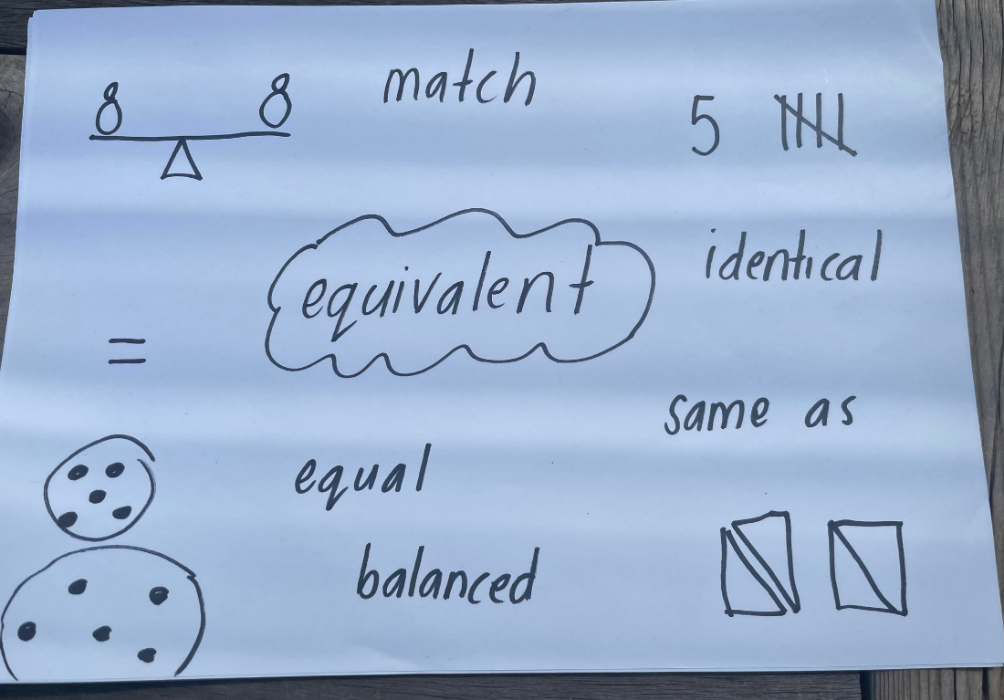 8 8
match
5
equivalent
identical
=
same as
equal
balanced